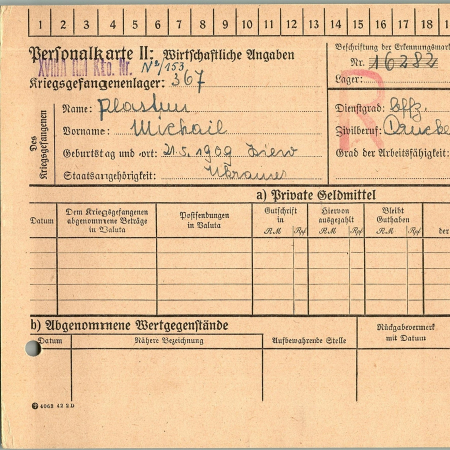 1 2 3 4 5 6 7 8 9 10 11 12 13 14 15 16 17 18
Personalkarte II: Wirtschaftliche Angaben
Beschriftung der Erkennungsmark
Nº/153
Nr. 16282
Kriegsgefangenenlager: 367
Lager:
R
Des Kriegsgefangenen
Name: Plastun
Dienstgrad: Uffz.
Vorname: Michail
Zivilberuf: Drucke
Geburtstag und -ort: 21.5.1909 Kiew
Grad der Arbeitsfähigkeit:
Staatsangehörigkeit: Ukrainer
a) Private Geldmittel
Datum
Dem Kriegsgefangenen abgenommene Beträge in Valuta
Postsendungen in Valuta
Gutschrift in
RM Rpf
Hiervon ausgezahlt
RM Rpf
Bleibt Guthaben
RM Rpf
der
b) Abgenommene Wertgegenstände
Datum
Nähere Bezeichnung
Aufbewahrende Stelle
Rückgabevermerk mit Datum
4063 42 2 D